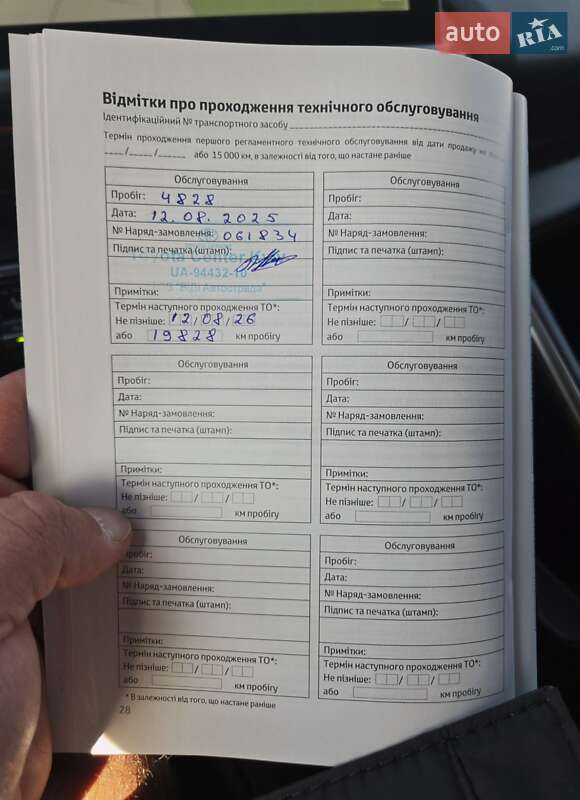 auto RIA .com
Відмітки про проходження технічного обслуговування
Ідентифікаційний № транспортного засобу
Термін проходження першого регламентного технічного обслуговування від дати продажу не
___/___/___ або 15 000 км, в залежності від того, що настане раніше
Обслуговування
Пробіг: 4828
Дата: 12.08.2025
№ Наряд-замовлення: 061834
Підпис та печатка (штамп):
Toyota Center Kyiv
UA-94432-10
"Віді Автострада"
Примітки:
Термін наступного проходження ТО*:
Не пізніше: 12/08/26
або 19828 км пробігу
Обслуговування
Пробіг:
Дата:
№ Наряд-замовлення:
Підпис та печатка (штамп):
Примітки:
Термін наступного проходження ТО*:
Не пізніше: / /
або км пробігу
Обслуговування
Пробіг:
Дата:
№ Наряд-замовлення:
Підпис та печатка (штамп):
Примітки:
Термін наступного проходження ТО*:
Не пізніше: / /
або км пробігу
Обслуговування
Пробіг:
Дата:
№ Наряд-замовлення:
Підпис та печатка (штамп):
Примітки:
Термін наступного проходження ТО*:
Не пізніше: / /
або км пробігу
Обслуговування
Пробіг:
Дата:
№ Наряд-замовлення:
Підпис та печатка (штамп):
Примітки:
Термін наступного проходження ТО*:
Не пізніше: / /
або км пробігу
Обслуговування
Пробіг:
Дата:
№ Наряд-замовлення:
Підпис та печатка (штамп):
Примітки:
Термін наступного проходження ТО*:
Не пізніше: / /
або км пробігу
* В залежності від того, що настане раніше
28